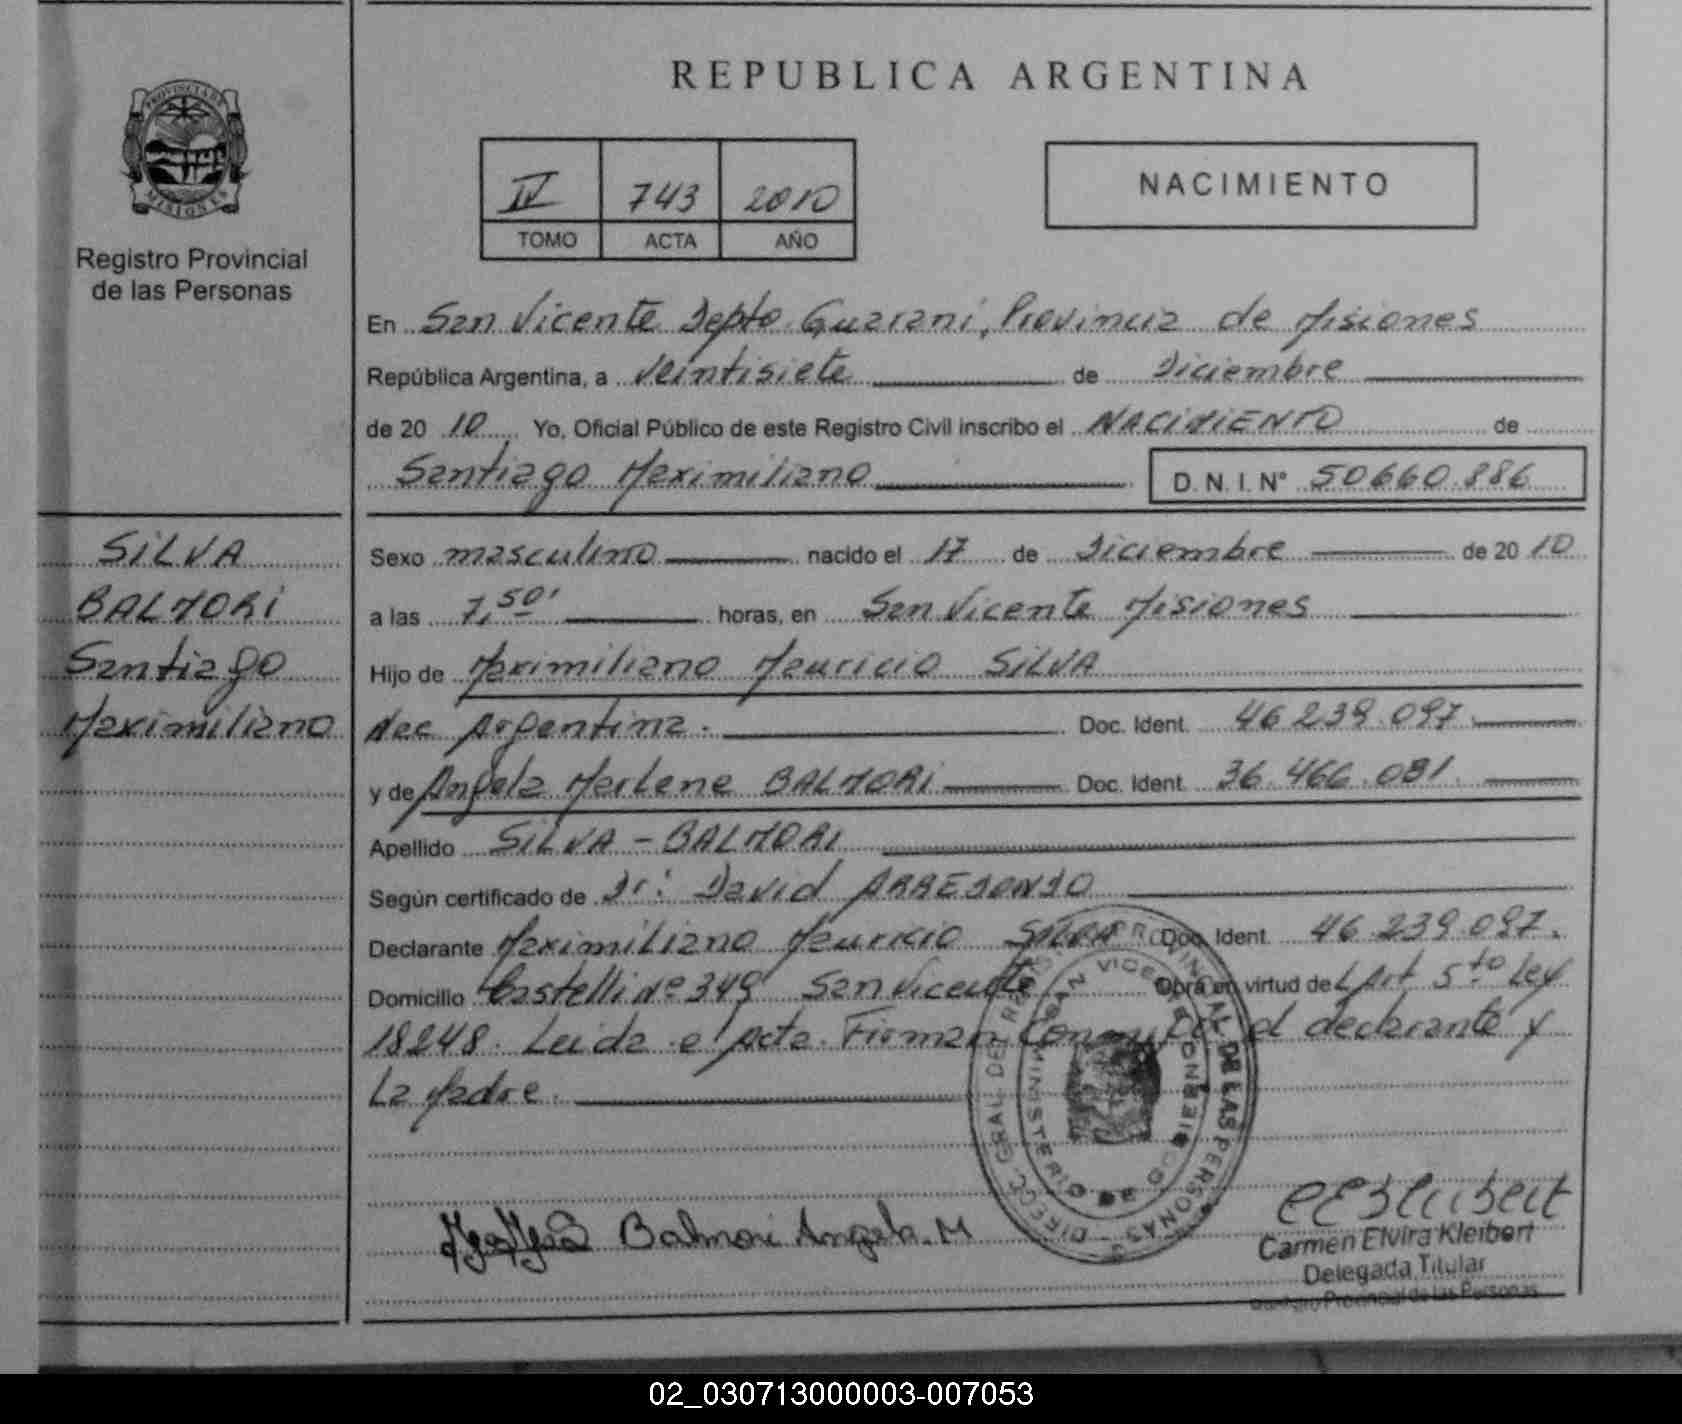 REPUBLICA ARGENTINA
PROVINCIA DE
MISIONES
Registro Provincial
de las Personas
IV 743 2010
TOMO ACTA AÑO
NACIMIENTO
En San Vicente Depto Guarani, Provincia de Misiones
República Argentina, a veintisiete de Diciembre
de 20 10 Yo, Oficial Público de este Registro Civil inscribo el NACIMIENTO de
Santiago Maximiliano D.N.I. N° 50660.886
SILVA
BALMORI
Santiago
Maximiliano
Sexo masculino nacido el 17 de Diciembre de 20 10
a las 7,50' horas, en San Vicente Misiones
Hijo de Maximiliano Mauricio SILVA
Nac Argentina. Doc. Ident. 46 239.097.
y de Angela Marlene BALMORI Doc. Ident. 36.466.081.
Apellido SILVA - BALMORI
Según certificado de Dr: David ARREDONDO
Declarante Maximiliano Mauricio SILVA Doc. Ident. 46.239.097.
Domicilio Castelli Nº 349 San Vicente Obra en virtud de L Art 5to Ley
18248. Leida el Acta. Firman Conmigo el declarante y
La Madre.
Balmori Angela. M
DIRECC. GRAL DE REG. PROVINCIAL DE LAS PERSONAS
MINISTERIO DE GOBIERNO
SAN VICENTE
Carmen Elvira Kleibert
Delegada Titular
Registro Provincial de las Personas
02_030713000003-007053